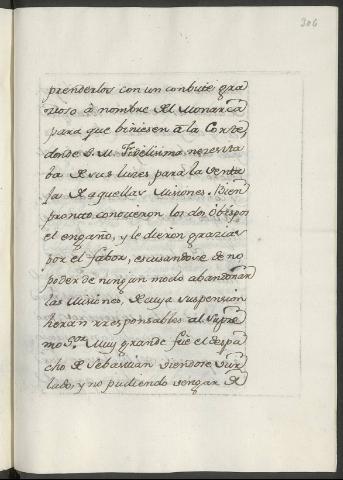 306
prenderlos con un conbite gra
zioso â nombre del Monarca
para que biniesen â la Corte,
donde S. M. Fidelisima nezesita
ba de sus luzes para la venta
ja de aquellas Misiones. Bien
pronto conocieron los dos Obispos
el engaño, y le dieron grazias
por el fabor, escusandose de no
poder de ningun modo abandonar
las Misiones, de cuya suspension
heran rresponsables al Supre
mo Sor. Muy grande fuè el despe
cho de Sebastian viendose bur
lado, y no pudiendo vengar de